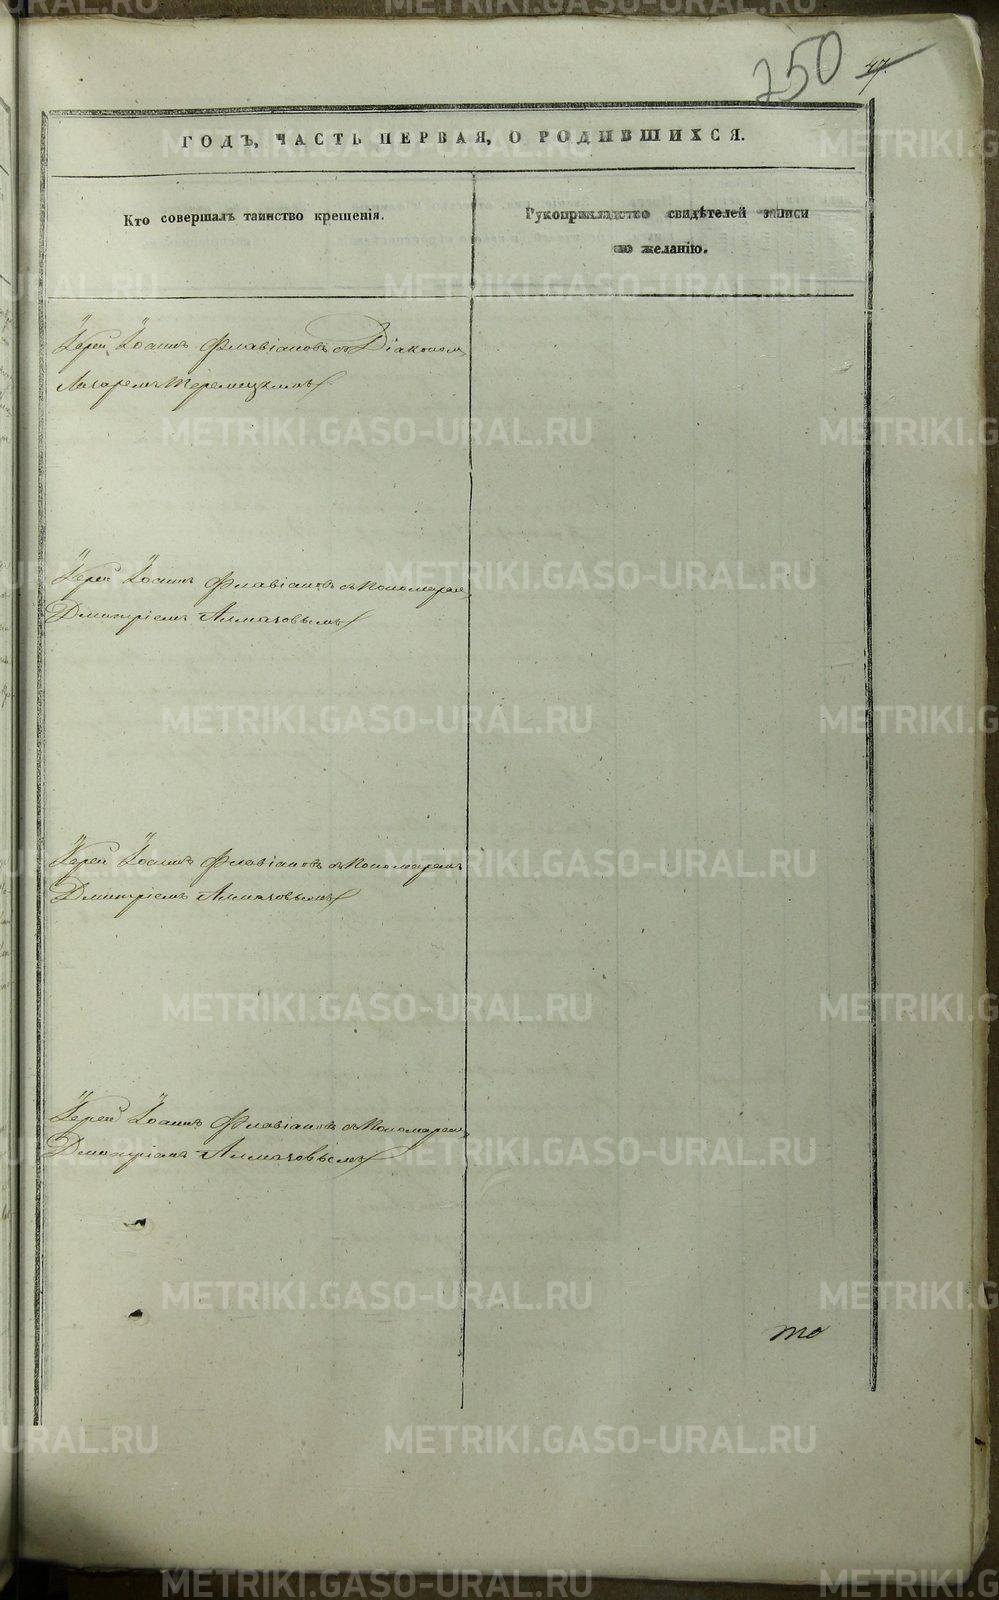 250 47.
ГОДЪ, ЧАСТЬ ПЕРВАЯ, О РОДИВШИХСЯ.
Кто совершалъ таинство крещенія.
Рукоприкладство свидѣтелей записи
по желанію.
Іерей Іоаннъ Флавіановъ съ Діакономъ
Лазаремъ
Іерей Іоаннъ Флавіановъ съ Пономаремъ
Дмитріемъ Алмазовымъ
Іерей Іоаннъ Флавіановъ съ Пономаремъ
Дмитріемъ Алмазовымъ
Іерей Іоаннъ Флавіановъ съ Пономаремъ
Дмитріемъ Алмазовымъ
то
METRIKI.GASO-URAL.RU